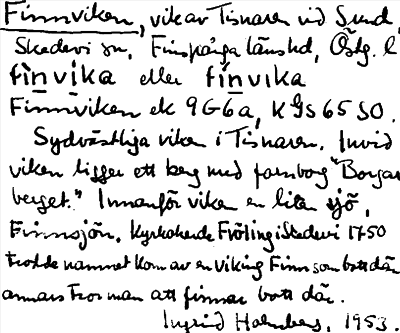 Finnviken, vik av Tisnaren vid Sund,
Skedevi sn, Finspånga länshd, Östg. l
fìn̲vi̲ka eller fín̲vika
Finnviken ek 9G6a, KGS 65 SO.
Sydvästliga viken i Tisnaren. Invid
viken ligger ett berg med fornborg "Borgar
berget." Innanför viken en liten sjö,
Finnsjön. Kyrkoherde Fröling i Skedevi 1750
trodde namnet kom av en viking Finn som bott där
annars tror man att finnar bott där.
Ingrid Holmberg, 1953.